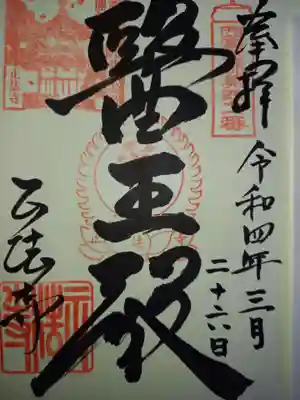 奉拝
令和四年三月
二十六日
醫王殿
正法寺
正法寺